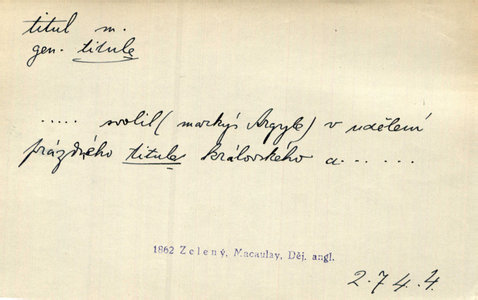 titul m.
gen. titula
..... svolil (markýs Argyle) v udělení
prázdného titula královského a......
1862 Zelený, Macaulay, Děj. angl.
2.74.4.